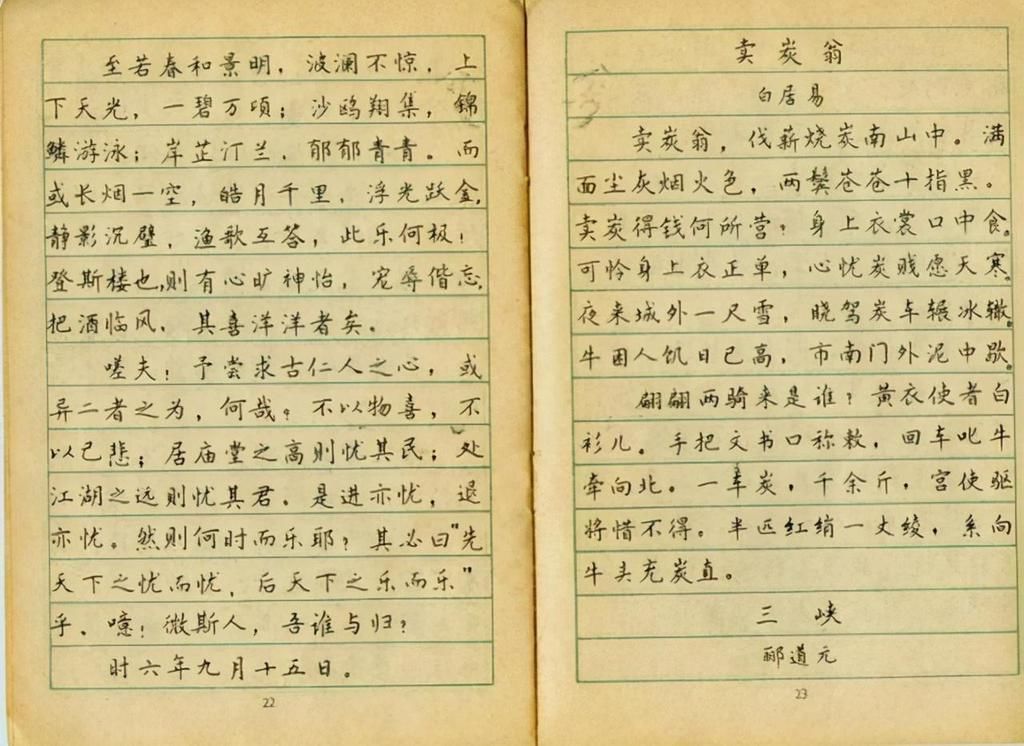 至若春和景明，波澜不惊，上
下天光，一碧万顷；沙鸥翔集，锦
鳞游泳；岸芷汀兰，郁郁青青。而
或长烟一空，皓月千里，浮光跃金，
静影沉璧，渔歌互答，此乐何极！
登斯楼也，则有心旷神怡，宠辱偕忘，
把酒临风，其喜洋洋者矣。
嗟夫！予尝求古仁人之心，或
异二者之为，何哉？不以物喜，不
以己悲；居庙堂之高则忧其民；处
江湖之远则忧其君。是进亦忧，退
亦忧。然则何时而乐耶？其必曰“先
天下之忧而忧，后天下之乐而乐”
乎、噫！微斯人，吾谁与归？
时六年九月十五日。
22
卖炭翁
白居易
卖炭翁，伐薪烧炭南山中。满
面尘灰烟火色，两鬓苍苍十指黑。
卖炭得钱何所营？身上衣裳口中食。
可怜身上衣正单，心忧炭贱愿天寒。
夜来城外一尺雪，晓驾炭车辗冰辙。
牛困人饥日已高，市南门外泥中歇。
翩翩两骑来是谁？黄衣使者白
衫儿。手把文书口称敕，回车叱牛
牵向北。一车炭，千余斤，宫使驱
将惜不得。半匹红绡一丈绫，系向
牛头充炭直。
三峡
郦道元
23